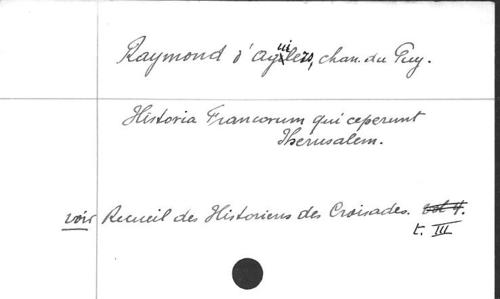 Raymond d'Aguilers, chan. du Puy.
Historia Francorum qui ceperunt
Iherusalem.
voir Recueil des Historiens des Croisades. vol 4.
t. III